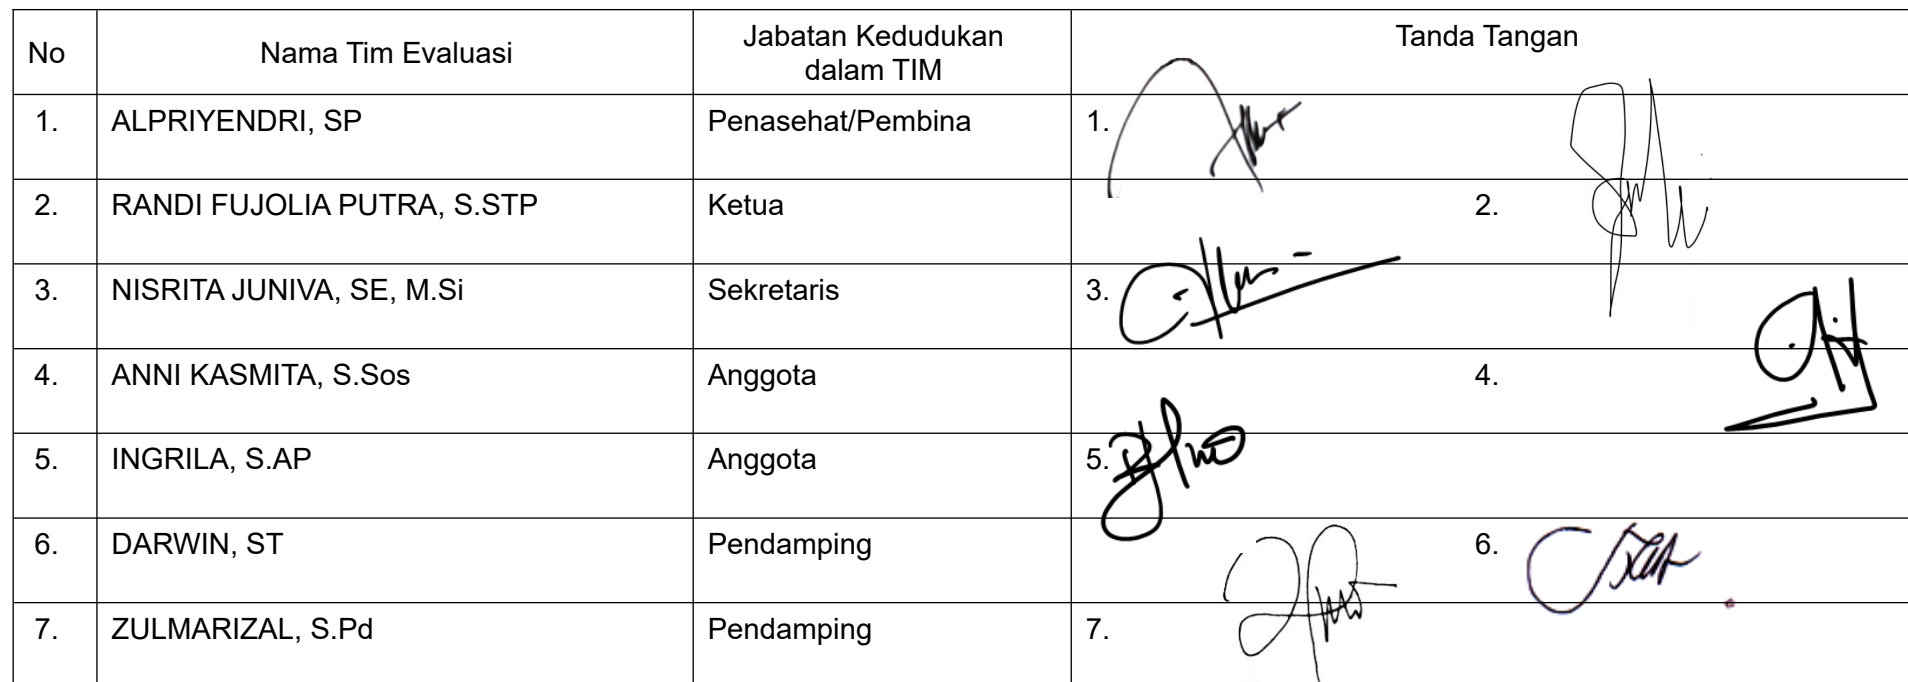 No Nama Tim Evaluasi Jabatan Kedudukan dalam TIM Tanda Tangan
1. ALPRIYENDRI, SP Penasehat/Pembina 1.
2. RANDI FUJOLIA PUTRA, S.STP Ketua 2.
3. NISRITA JUNIVA, SE, M.Si Sekretaris 3.
4. ANNI KASMITA, S.Sos Anggota 4.
5. INGRILA, S.AP Anggota 5.
6. DARWIN, ST Pendamping 6.
7. ZULMARIZAL, S.Pd Pendamping 7.